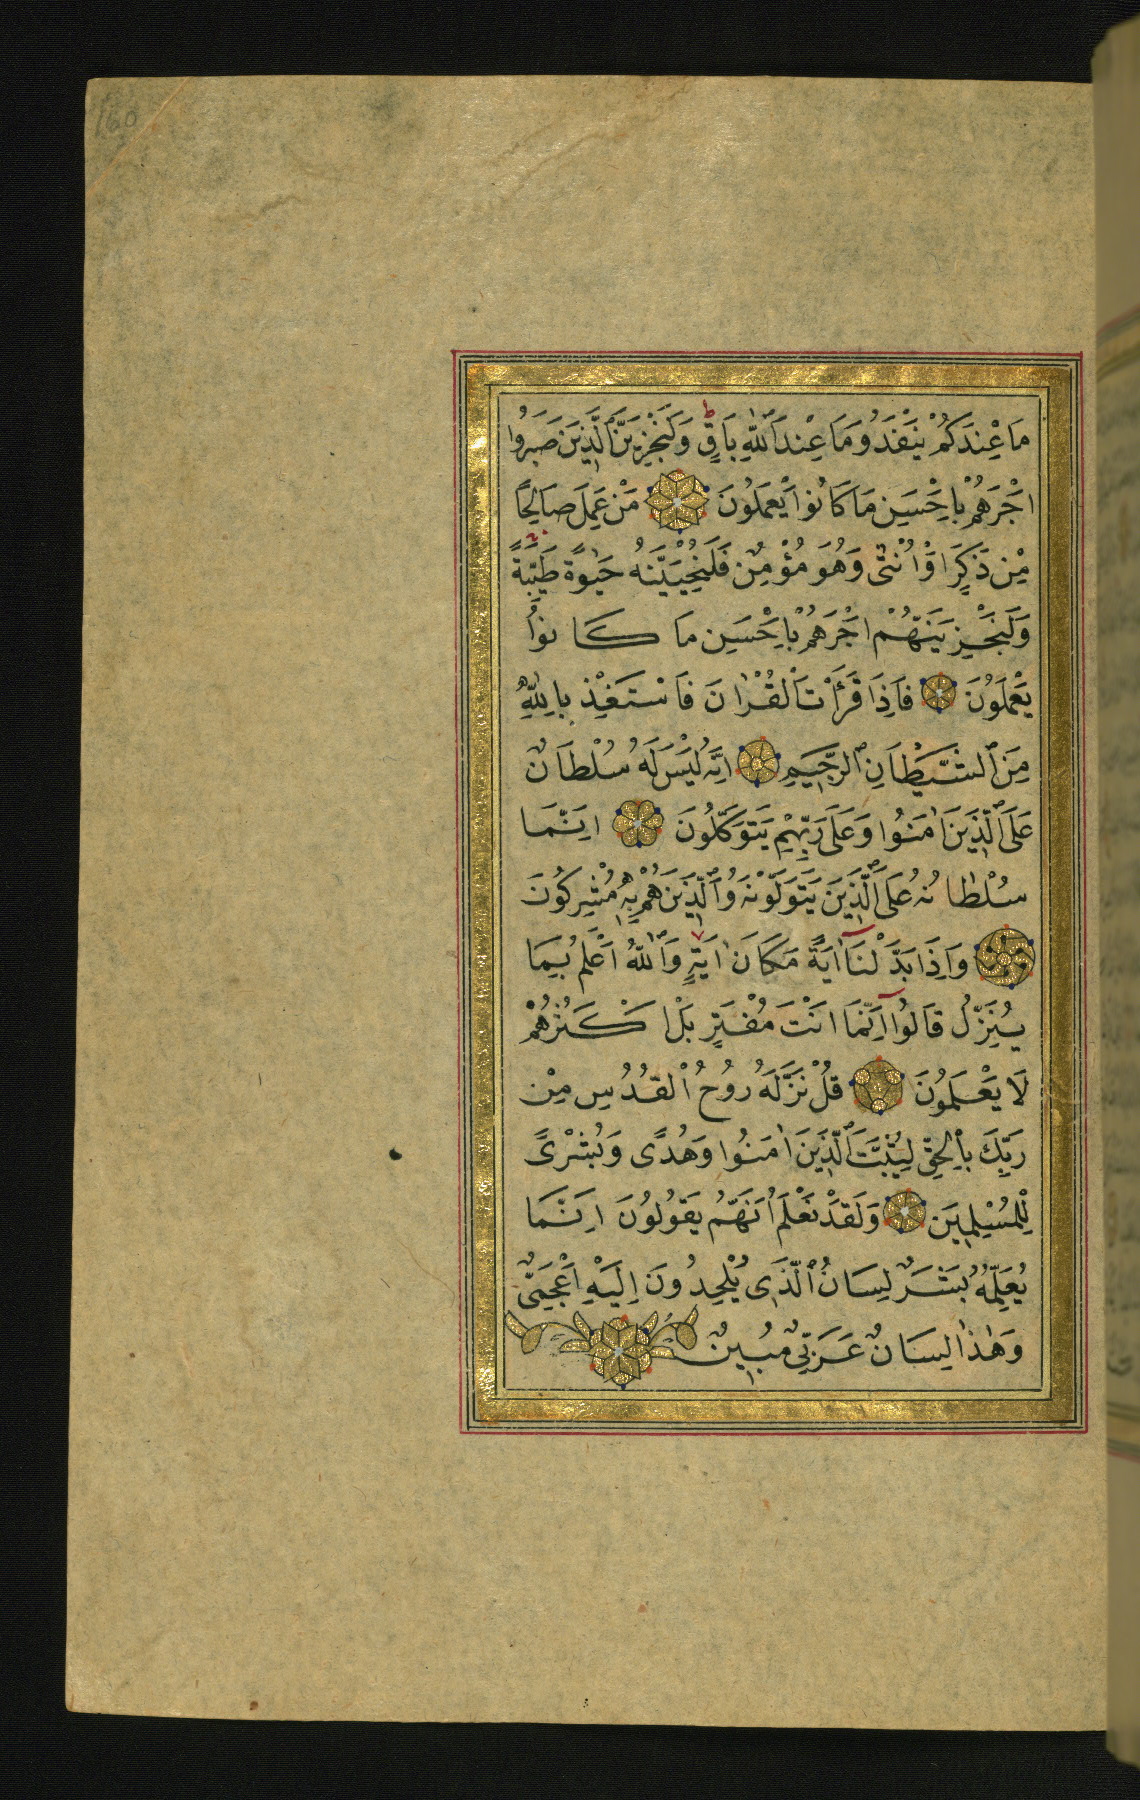 160
مَا عِنْدَكُمْ يَنْفَدُ وَمَا عِنْدَ ٱللّٰهِ بَاقٍ ط وَلَنَجْزِيَنَّ ٱلَّذِينَ صَبَرُوا
اَجْرَهُمْ بِاَحْسَنِ مَا كَانُوا يَعْمَلُونَ مَنْ عَمِلَ صَالِحًا
مِنْ ذَكَرٍ اَوْ اُنْثٰى وَهُوَ مُؤْمِنٌ فَلَنُحْيِيَنَّهُ حَيٰوةً طَيِّبَةً
وَلَنَجْزِيَنَّهُمْ اَجْرَهُمْ بِاَحْسَنِ مَا كَانُوا
يَعْمَلُونَ فَاِذَا قَرَأْتَ ٱلْقُرْاٰنَ فَاسْتَعِذْ بِاللّٰهِ
مِنَ ٱلشَّيْطَانِ ٱلرَّجِيمِ اِنَّهُ لَيْسَ لَهُ سُلْطَانٌ
عَلَى ٱلَّذِينَ اٰمَنُوا وَعَلٰى رَبِّهِمْ يَتَوَكَّلُونَ اِنَّمَا
سُلْطَانُهُ عَلَى ٱلَّذِينَ يَتَوَلَّوْنَهُ وَٱلَّذِينَ هُمْ بِهِ مُشْرِكُونَ
وَاِذَا بَدَّلْنَا اٰيَةً مَكَانَ اٰيَةٍ وَٱللّٰهُ اَعْلَمُ بِمَا
يُنَزِّلُ قَالُوا اِنَّمَا اَنْتَ مُفْتَرٍ بَلْ اَكْثَرُهُمْ
لَا يَعْلَمُونَ قُلْ نَزَّلَهُ رُوحُ ٱلْقُدُسِ مِنْ
رَبِّكَ بِالْحَقِّ لِيُثَبِّتَ ٱلَّذِينَ اٰمَنُوا وَهُدًى وَبُشْرٰى
لِلْمُسْلِمِينَ وَلَقَدْ نَعْلَمُ اَنَّهُمْ يَقُولُونَ اِنَّمَا
يُعَلِّمُهُ بَشَرٌ لِسَانُ ٱلَّذِى يُلْحِدُونَ اِلَيْهِ اَعْجَمِىٌّ
وَهٰذَا لِسَانٌ عَرَبِىٌّ مُبِينٌ